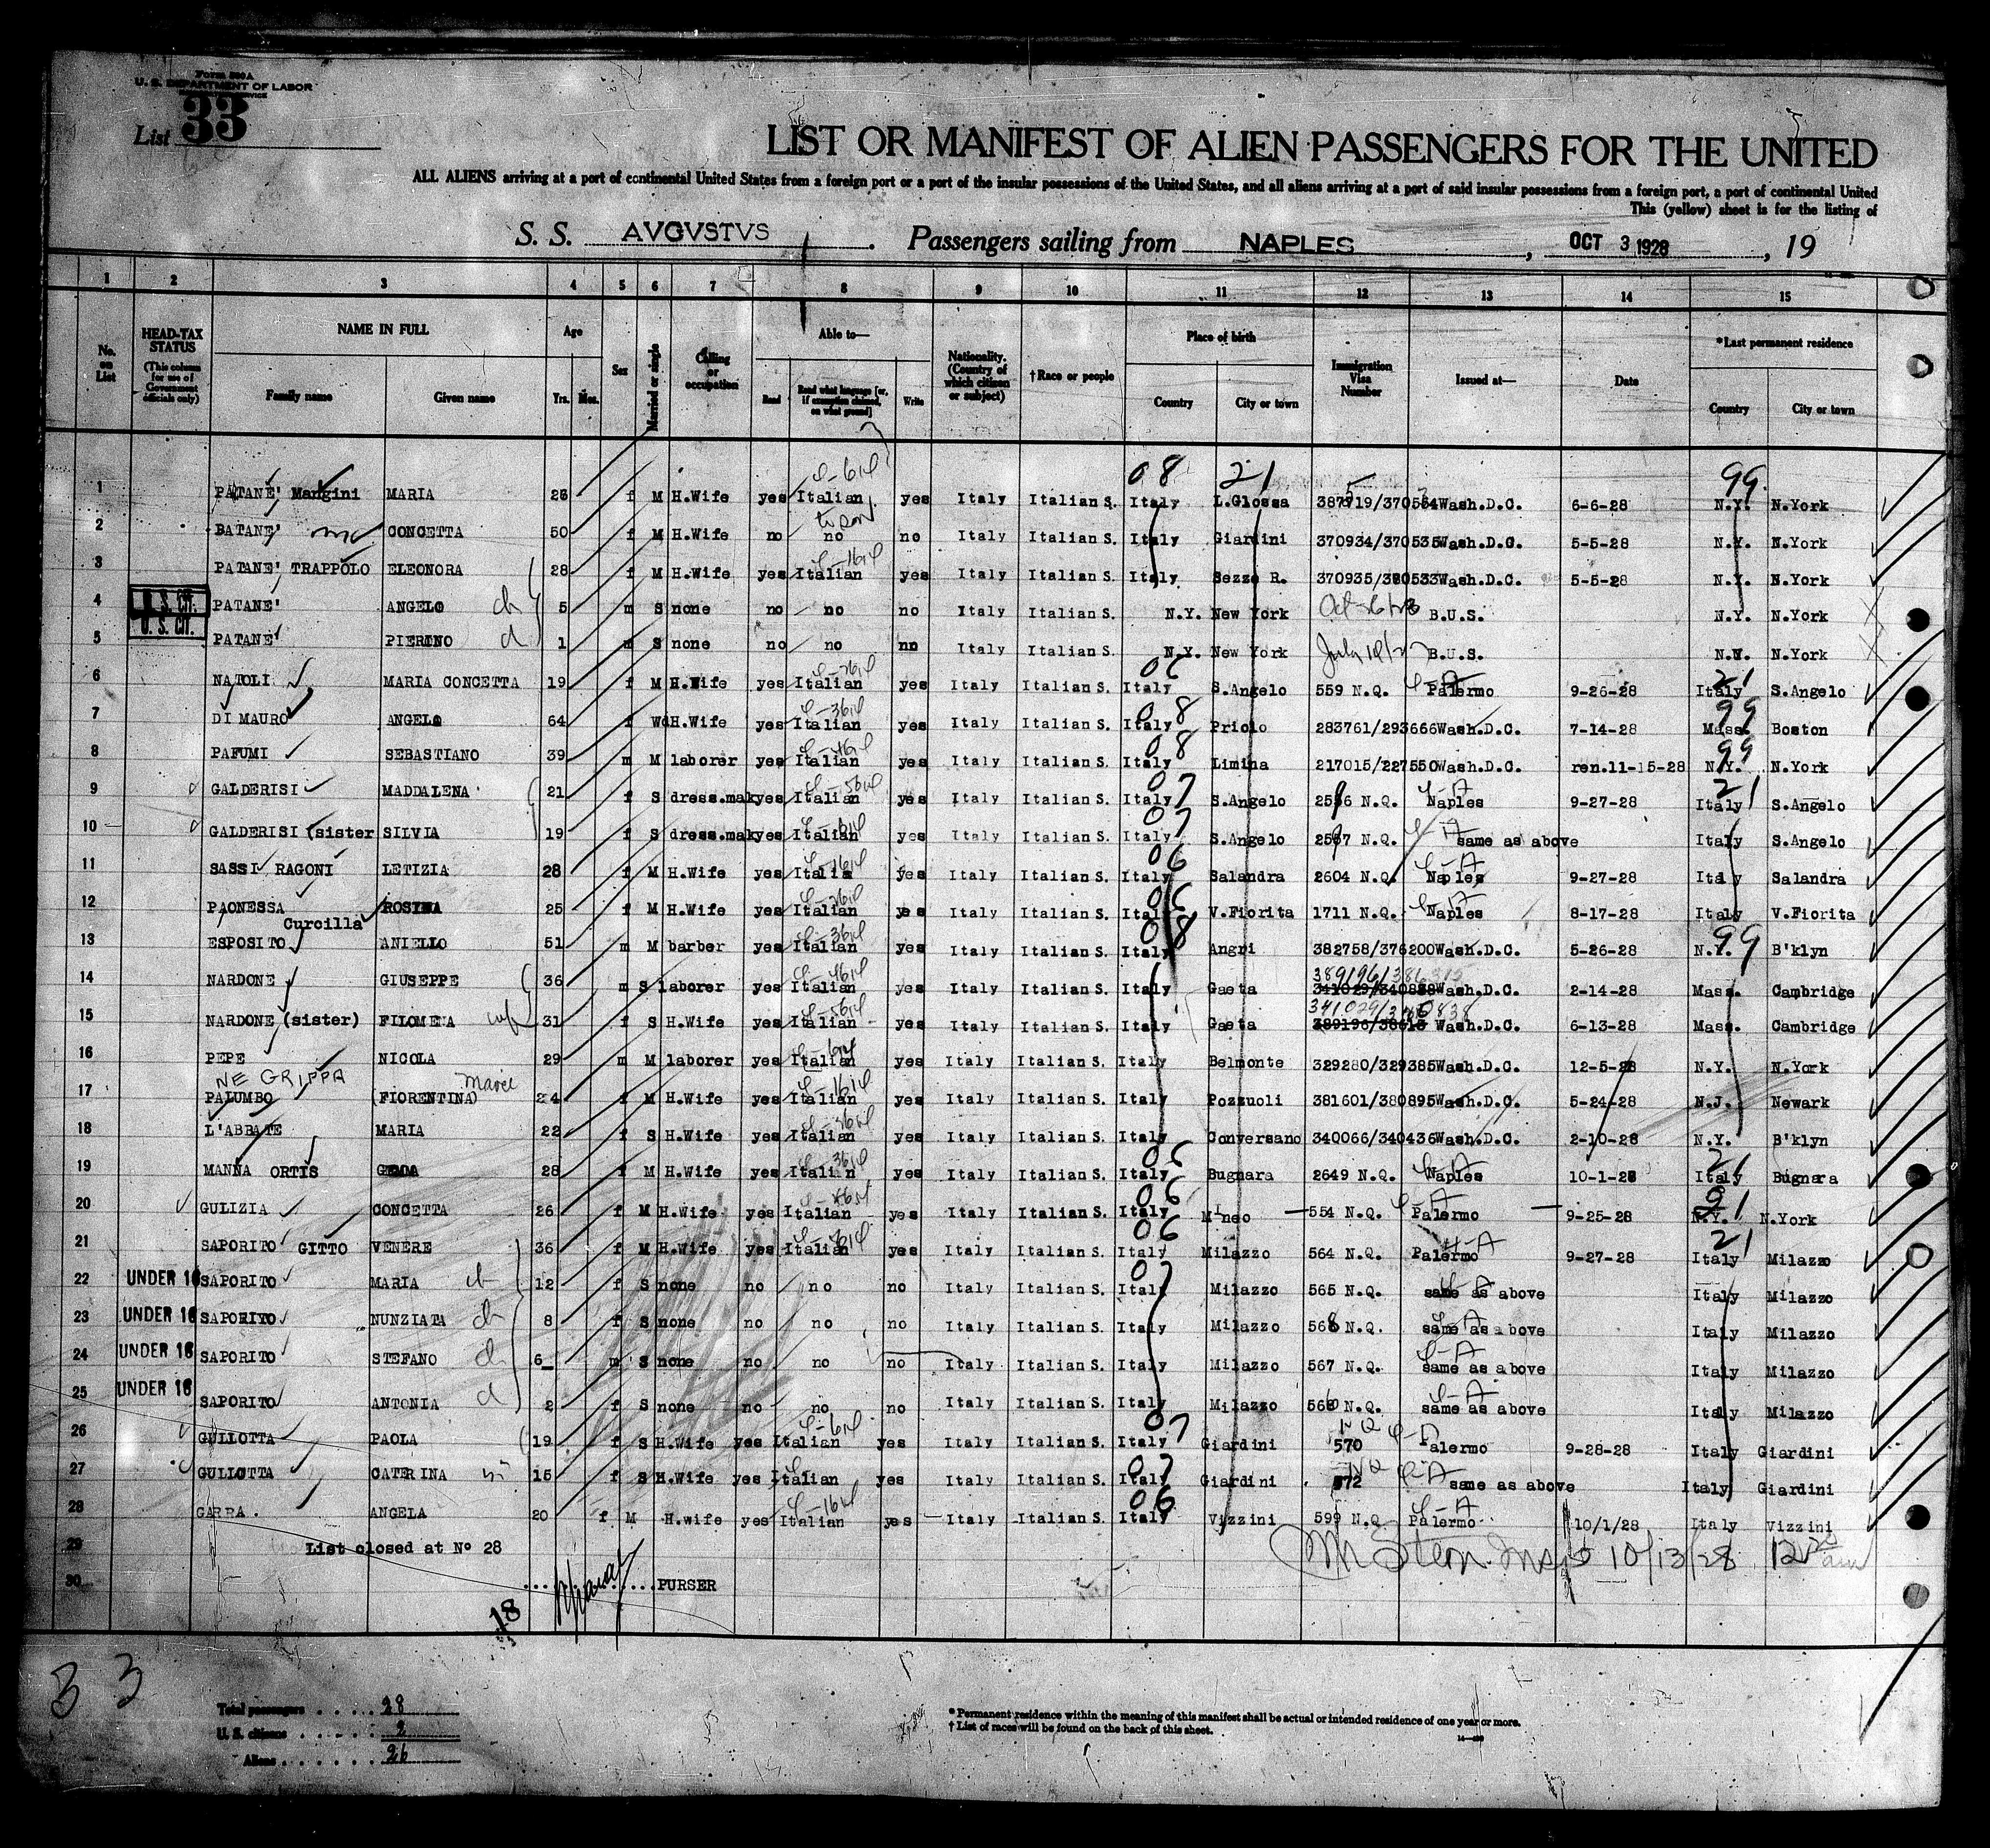 Form 500 A
U. S. DEPARTMENT OF LABOR
List 33
LIST OR MANIFEST OF ALIEN PASSENGERS FOR THE UNITED
ALL ALIENS arriving at a port of continental United States from a foreign port or a port of the insular possessions of the United States, and all aliens arriving at a port of said insular possessions from a foreign port, a port of continental United
This (yellow) sheet is for the listing of
S. S. AVGVSTVS . Passengers sailing from NAPLES , OCT 3 1928 , 19
1 2 3 4 5 6 7 8 9 10 11 12 13 14 15
No. on List HEAD-TAX STATUS (This column for use of Government officials only) NAME IN FULL Family name Given name Age Yrs. Mos. Sex Married or single Calling or occupation Able to— Read Read what language [or, if exemption claimed, on what ground] Write Nationality. (Country of which citizen or subject) †Race or people Place of birth Country City or town Immigration Visa Number Issued at— Date *Last permanent residence Country City or town
08 21 99
1 PATANE' Mangini MARIA 26 f M H.Wife yes Italian yes Italy Italian S. Italy L.Glossa Wash.D.C. 6-6-28 N.Y. N.York
2 BATANE' CONCETTA 50 f M H.Wife no no no Italy Italian S. Italy Giardini 370934/370535 Wash.D.C. 5-5-28 N.Y. N.York
3 PATANE' TRAPPOLO ELEONORA 28 f M H.Wife yes Italian yes Italy Italian S. Italy Sezze R. Wash.D.C. 5-5-28 N.Y. N.York
4 U. S. CIT. PATANE' ANGELO ch 5 m S none no no no Italy Italian S. N.Y. New York B.U.S. N.Y. N.York
5 U. S. CIT. PATANE' PIERINO 1 m S none no no no Italy Italian S. N.Y. New York B.U.S. N.Y. N.York
6 NATOLI MARIA CONCETTA 19 f M H.Wife yes Italian yes Italy Italian S. Italy 06 S.Angelo 559 N.Q. Palermo 9-26-28 Italy 21 S.Angelo
7 DI MAURO ANGELO 64 f Wd H.Wife yes Italian yes Italy Italian S. Italy 08 Priolo 283761/293666 Wash.D.C. 7-14-28 Mass. 99 Boston
8 PAFUMI SEBASTIANO 39 m M laborer yes Italian yes Italy Italian S. Italy 08 Limina 217015/227550 Wash.D.C. ren.11-15-28 N.Y. 99 N.York
9 GALDERISI MADDALENA 21 f S dress.mak yes Italian yes Italy Italian S. Italy 07 S.Angelo N.Q. Naples 9-27-28 Italy 21 S.Angelo
10 GALDERISI (sister SILVIA 19 f S dress.mak yes Italian yes Italy Italian S. Italy 07 S.Angelo N.Q. same as above Italy S.Angelo
11 SASSI RAGONI LETIZIA 28 f M H.Wife yes Italia yes Italy Italian S. Italy 06 Salandra 2604 N.Q. Naples 9-27-28 Italy Salandra
12 PAONESSA Curcilla ROSINA 25 f M H.Wife yes Italian yes Italy Italian S. Italy 06 V.Fiorita 1711 N.Q. Naples 8-17-28 Italy V.Fiorita
13 ESPOSITO ANIELLO 51 m M barber yes Italian yes Italy Italian S. Italy 08 Angri 382758/376200 Wash.D.C. 5-26-28 N.Y. 99 B'klyn
14 NARDONE GIUSEPPE 36 m S laborer yes Italian yes Italy Italian S. Italy Gaeta Wash.D.C. 2-14-28 Mass. Cambridge
15 NARDONE (sister) FILOMENA 31 f S H.Wife yes Italian yes Italy Italian S. Italy Gaeta 341029/340838 Wash.D.C. 6-13-28 Mass. Cambridge
16 PEPE NICOLA 29 m M laborer yes Italian yes Italy Italian S. Italy Belmonte 329280/329385 Wash.D.C. 12-5-28 N.Y. N.York
NE GRIPPA
17 PALUMBO (FIORENTINA) 24 f M H.Wife yes Italian yes Italy Italian S. Italy Pozzuoli 381601/380895 Wash.D.C. 5-24-28 N.J. Newark
18 L'ABBATE MARIA 22 f S H.Wife yes Italian yes Italy Italian S. Italy Conversano 340066/340436 Wash.D.C. 2-10-28 N.Y. B'klyn
19 MANNA ORTIS 28 f M H.Wife yes Italian yes Italy Italian S. Italy 06 Bugnara 2649 N.Q. Naples 10-1-28 Italy 21 Bugnara
20 GULIZIA CONCETTA 26 f M H.Wife yes Italian yes Italy Italian S. Italy 06 Mineo 554 N.Q. Palermo 9-25-28 N.Y. N.York
21 SAPORITO GITTO VENERE 36 f M H.Wife yes Italian yes Italy Italian S. Italy 06 Milazzo 564 N.Q. Palermo 9-27-28 Italy 21 Milazzo
22 UNDER 16 SAPORITO MARIA ch 12 f S none no no no Italy Italian S. Italy 07 Milazzo 565 N.Q. same as above Italy Milazzo
23 UNDER 16 SAPORITO NUNZIATA ch 8 f S none no no no Italy Italian S. Italy Milazzo 568 N.Q. same as above Italy Milazzo
24 UNDER 16 SAPORITO STEFANO ch 6 m S none no no no Italy Italian S. Italy Milazzo 567 N.Q. same as above Italy Milazzo
25 UNDER 16 SAPORITO ANTONIA 2 f S none no no no Italy Italian S. Italy Milazzo N.Q. same as above Italy Milazzo
26 GULLOTTA PAOLA 19 f S H.Wife yes Italian yes Italy Italian S. Italy 07 Giardini 570 NQ Palermo 9-28-28 Italy Giardini
27 GULLOTTA CATERINA 15 f S H.Wife yes Italian yes Italy Italian S. Italy 07 Giardini 572 NQ same as above Italy Giardini
28 GARRA. ANGELA 20 f M H.wife yes Italian yes Italy Italian S. Italy 06 Vizzini 599 N.Q Palermo 10/1/28 Italy Vizzini
29 List closed at No 28 M Stern Insp 10/13/28
30 PURSER
18
33
Total passengers 28
U. S. citizens 2
Aliens 26
* Permanent residence within the meaning of this manifest shall be actual or intended residence of one year or more.
† List of races will be found on the back of this sheet.